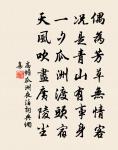 偶為芳草無情客
況是青山有事身
一夕瓜洲渡頭宿
天風吹盡廣陵塵
高蟾瓜洲夜泊詞典網
集